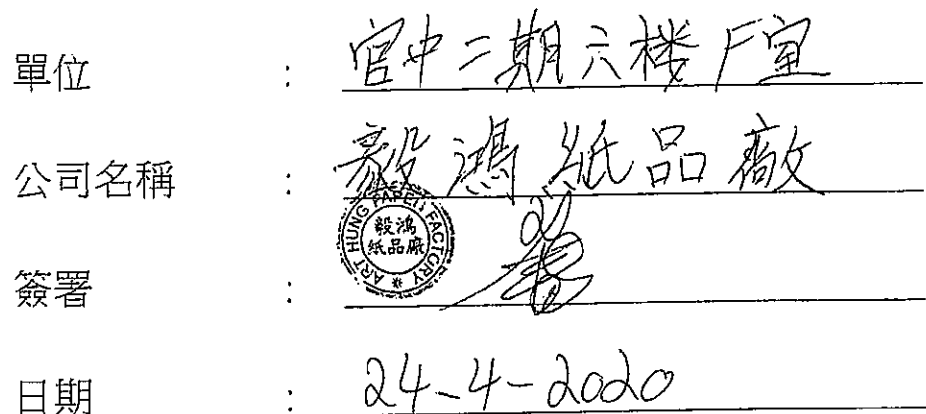 單位 : 官中二期六楼F室
公司名稱 : 毅鴻紙品廠
ART HUNG PAPER FACTORY
毅鴻
紙品廠
簽署 :
日期 : 24-4-2020